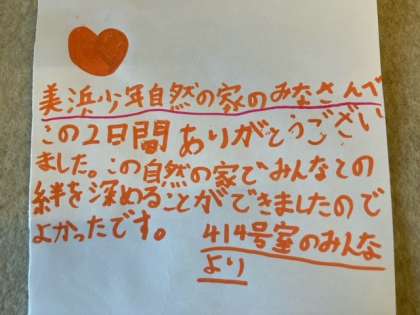 美浜少年自然の家のみなさんへ
この2日間ありがとうござい
ました。この自然の家でみんなとの
絆を深めることができましたので
よかったです。
414号室のみんな
より